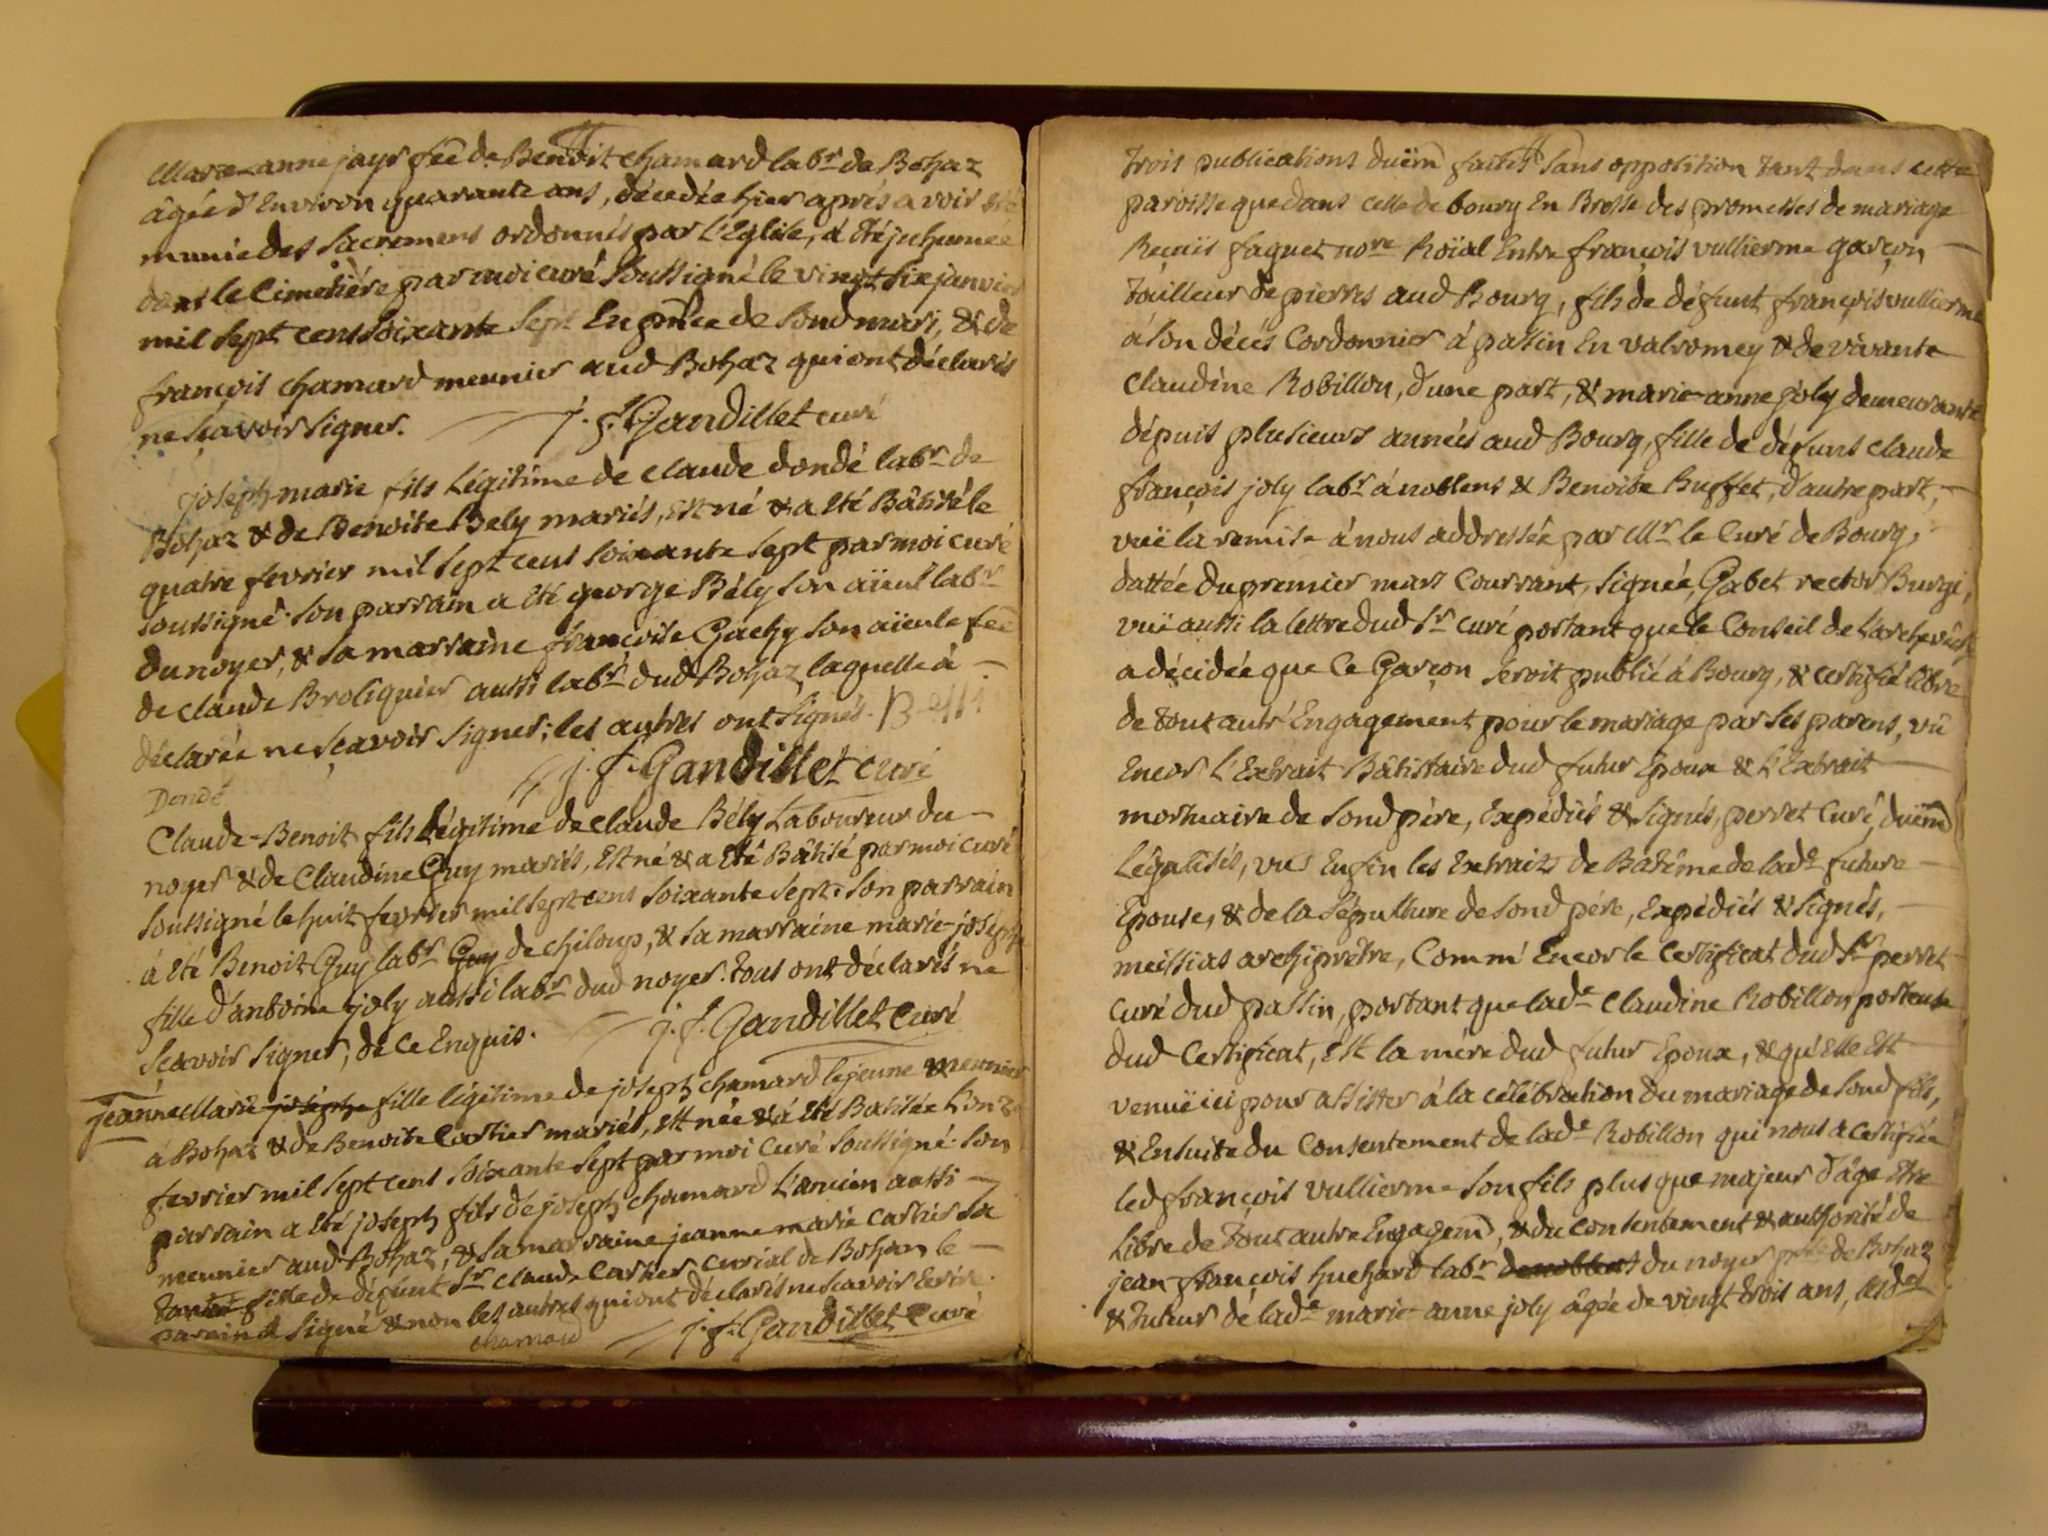 Marie-anne jayr fẽe de Benoit Chamard labr. de Bohaz
âgée d'Environ quarante ans, décedée hier aprés avoir été
munie des Sacremens ordonnés par l'Eglise, á été jnhumée
dans le Cimetiére par moi curé Soussigné le vingt Six janvier
mil Sept cent Soixante Sept En pñce de Sond mari, & de
françois Chamard meunier aud Bohaz qui ont déclarés
ne Sçavoir Signer. j. f. Gandillet curé
joseph-marie fils Légitime de Claude dondé labr. de
Bohaz & de Benoite Bely mariés, Est né & a été Bâtisé le
quatre fevrier mil Sept cent Soixante Sept par moi curé
soussigné. Son parrain a été george Bély Son aïeul labr.
du noyer, & Sa marraine françoise Gachy Son aïeule fẽe
de Claude Broliquier aussi labr. dud Bohaz, laquelle á
déclarée ne Sçavoir Signer; les autres ont Signés. Belli
Dondé j. f. Gandillet Curé
Claude-Benoit fils Légitime de Claude Bély Laboureur du
noyer & de Claudine Guy mariés, Est né & a Eté Bâtisé par moi curé
Soussigné le huit fevrier mil Sept cent Soixante Sept. Son parrain
á été Benoit Guy labr. Guy de Chiloup, & Sa marraine marie-joseph
fille d'antoine joly aussi labr. dud noyer. tous ont déclarés ne
Sçavoir Signer, de ce Enquis. j. f. Gandillet Curé
jeanne Marie josephe fille légitime de joseph Chamard lejeune meunier
á Bohaz & de Benoite Cartier mariés, Est née & á Eté Batisée L'onze
fevrier mil Sept cent Soixante Sept par moi Curé Soussigné. Son
parrain a été joseph fils de joseph Chamard L'ancien aussi
meunier aud Bohaz, & Sa marraine jeanne marie Cartier Sa
tante fille de défunt Sr. Claude Cartier Curial de Bohan le
parain a Signé & non les autres qui ont déclarés ne Scavoir Ecrire.
chamard j. f. Gandillet Curé
trois publications duëm̃ faites Sans opposition tant dans cette
paroisse que dans celle de bourg En Bresse des promesses de mariage
Reçuës faguet nore Roïal Entre françois vullierme garçon
tailleur de pierres aud Bourg, fils de défunt françois vullierme
á Son décés Cordonnier á passin En valromey & de vivante
Claudine Robillon, d'une part, & marie-anne joly demeurante
depuis plusieurs années aud Bourg, fille de défunt Claude
françois joly labr. á noblens & Benoite Buffet, d'autre part,
vuë la remise á nous addressée par Mr. le Curé de Bourg,
dattée du premier mars Courrant, Signée, Gabet rector Burgi,
vuë aussi la lettre dud Sr. curé portant que le Conseil de L'archevêché
a décidée que le Garçon Seroit publié á Bourg, & Certifié libre
de tout autr'Engagement pour le mariage par Ses parens, vû
Encor L'Extrait Bâtistaire dud futur Epoux & L'Extrait
mortuaire de Sond pére, Expédiés & Signés, perret Curé, duëm̃
Légalisés, vus Enfin les Extraits de Batême de lade. future
Epouse, & de la Sépulture de Sond pére, Expédiés & Signés,
meissias archiprêtre, Comm'Encor le Certificat dud Sr. perret
Curé dud passin, portant que lade. Claudine Robillon, porteuse
dud Certificat, Est la mére dud futur Epoux, & qu'Elle Est
venuë ici pour assister á la célébration du mariage de Sond fils,
& Ensuite du Consentement de lade. Robillon qui nous a certifiée
led françois vullierme Son fils plus que majeur d'âge Etre
Libre de tout autre Engagem̃, & du consentement & authorité de
jean françois huchard labr. de noblent du noyer psse de Bohaz
& tuteur de lade. marie-anne joly âgée de vingt trois ans, lesdes